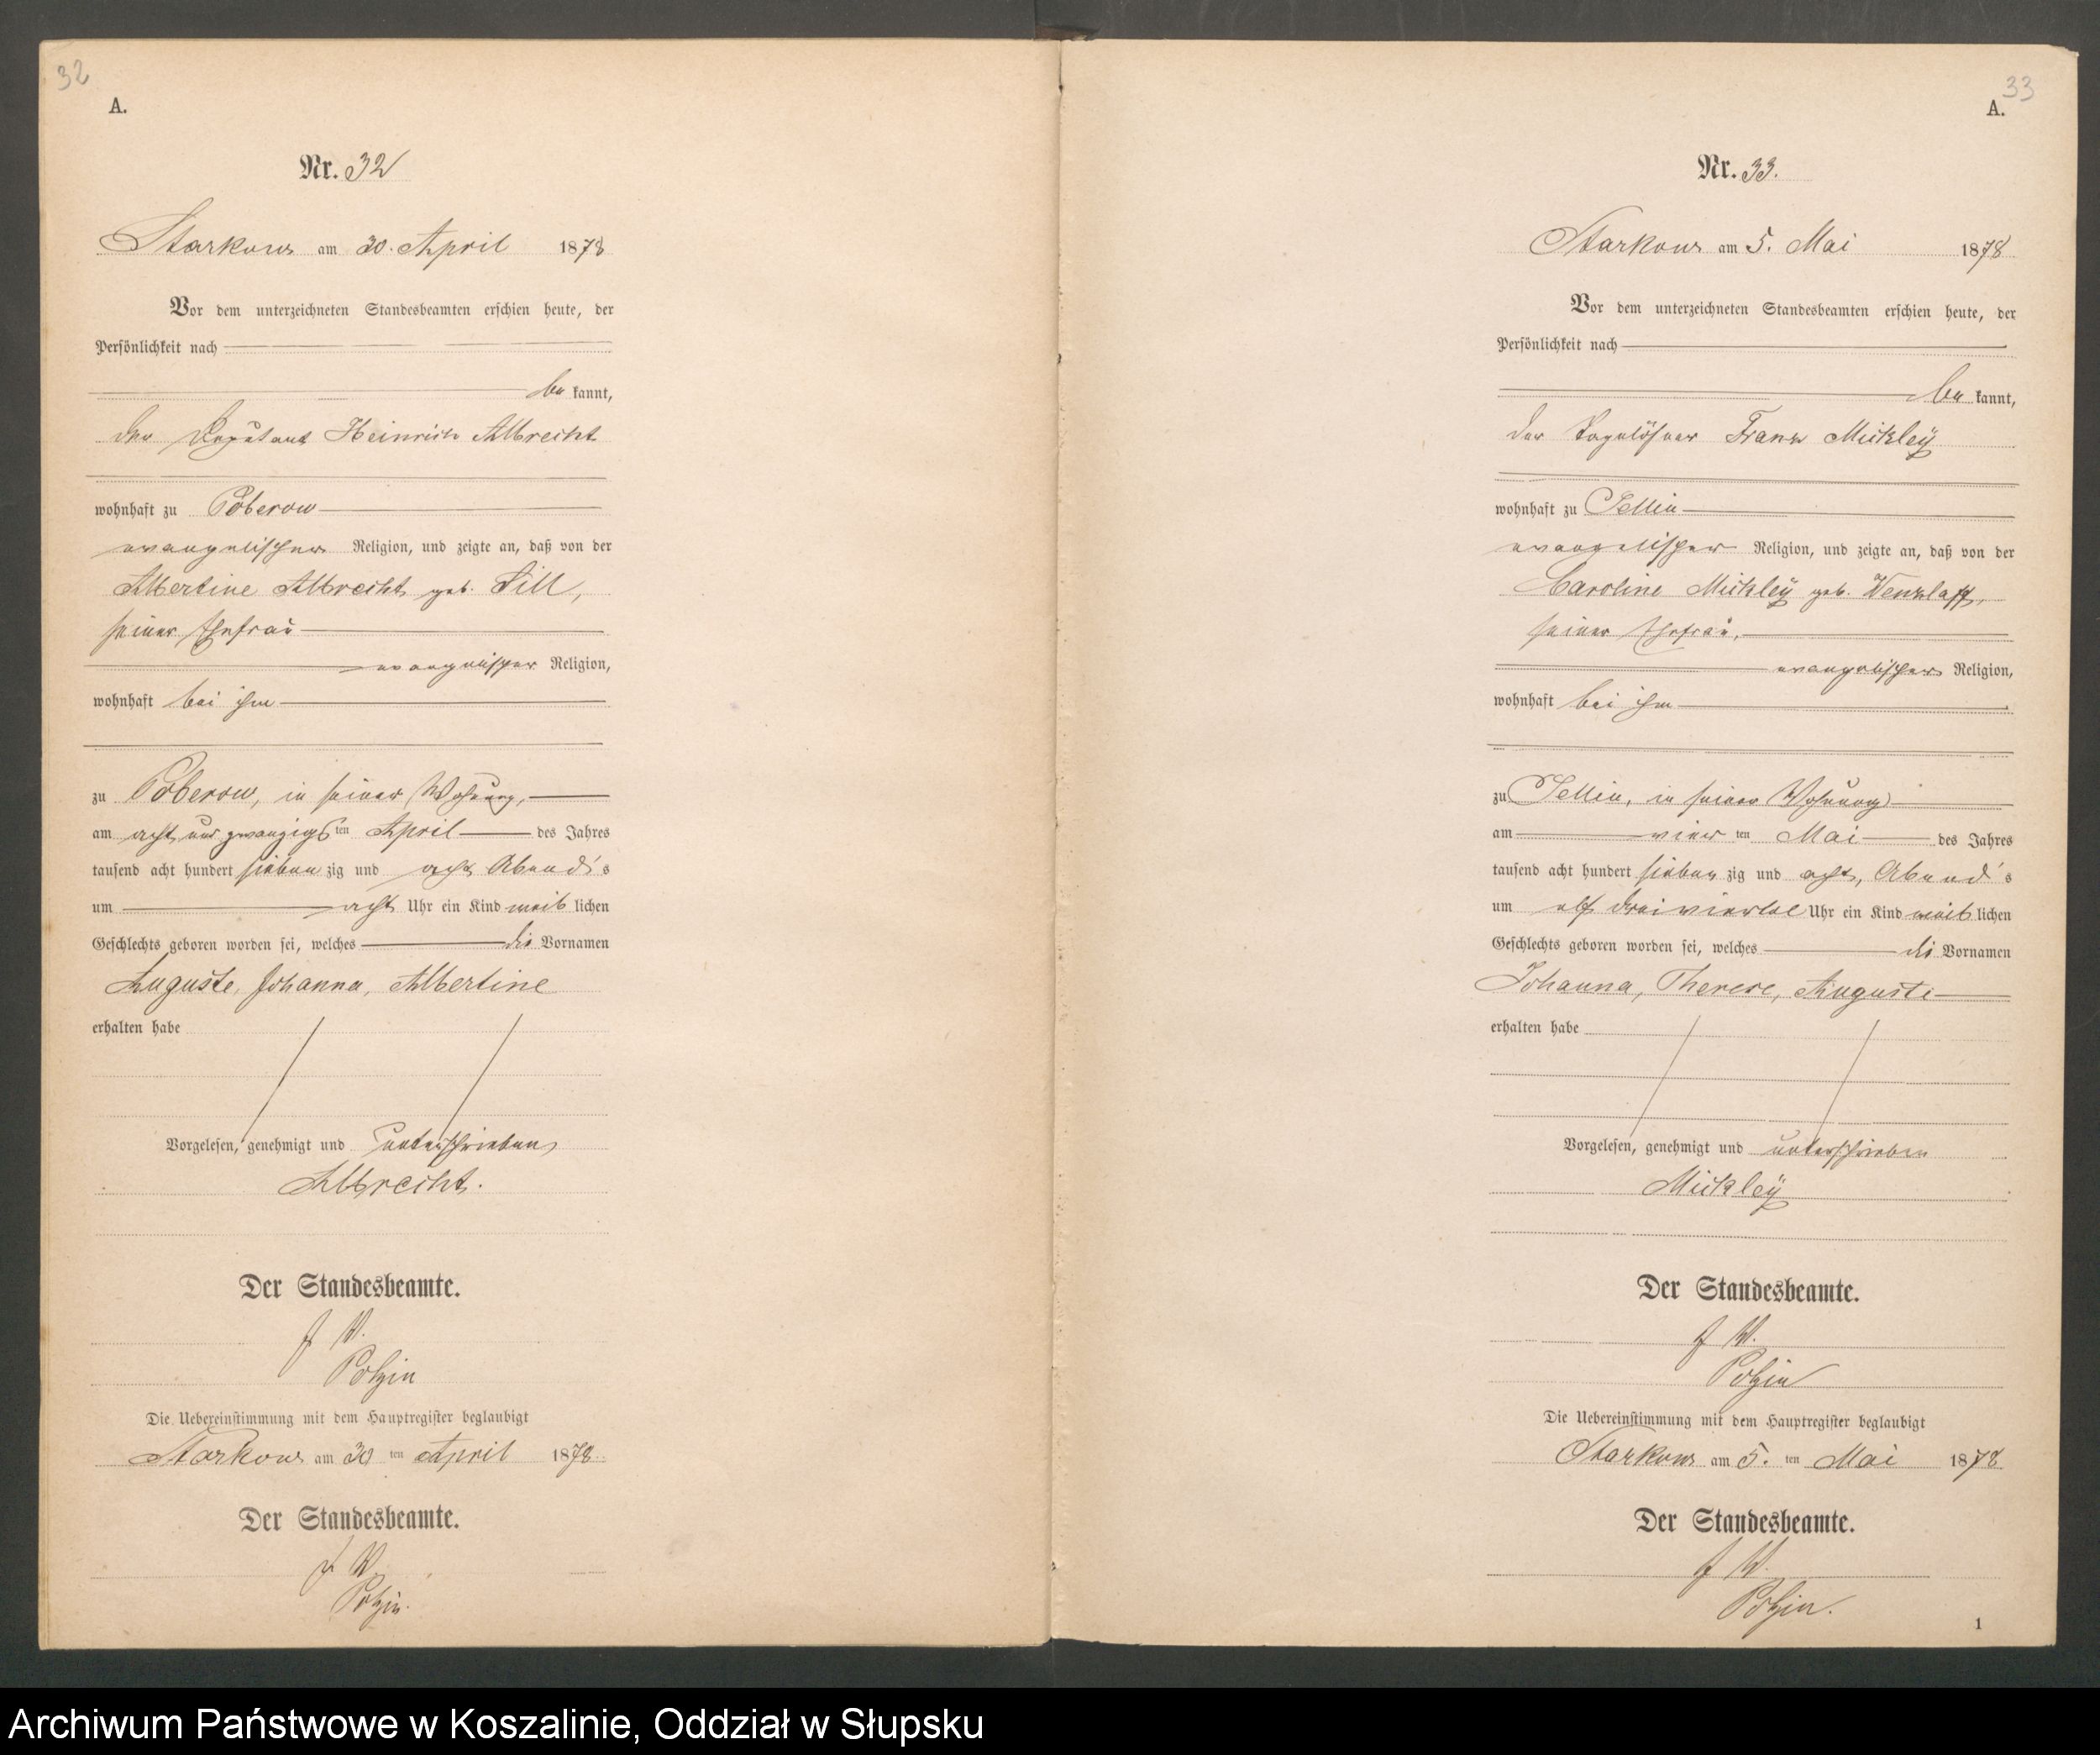 32
A.
Nr. 32
Starkow am 30. April 1878
Vor dem unterzeichneten Standesbeamten erschien heute, der
Persönlichkeit nach
be kannt,
der Deputant Heinrich Albrecht
wohnhaft zu Poberow
evangelischer Religion, und zeigte an, daß von der
Albertine Albrecht geb. Till,
seiner Ehefrau
evangelischer Religion,
wohnhaft bei ihm
zu Poberow, in seiner Wohnung,
am acht und zwanzigsten April des Jahres
tausend acht hundert sieben zig und acht Abend's
um acht Uhr ein Kind weib lichen
Geschlechts geboren worden sei, welches die Vornamen
Auguste, Johanna, Albertine
erhalten habe
Vorgelesen, genehmigt und unterschrieben
Albrecht.
Der Standesbeamte.
J V.
Polzin
Die Uebereinstimmung mit dem Hauptregister beglaubigt
Starkow am 30 ten April 1878.
Der Standesbeamte.
J V.
Polzin.
33
A.
Nr. 33.
Starkow am 5. Mai 1878
Vor dem unterzeichneten Standesbeamten erschien heute, der
Persönlichkeit nach
be kannt,
der Tagelöhner Franz Mickley
wohnhaft zu Sellin
evangelischer Religion, und zeigte an, daß von der
Caroline Mickley geb. Wenzlaff,
seiner Ehefrau,
evangelischer Religion,
wohnhaft bei ihm
zu Sellin, in seiner Wohnung
am vier ten Mai des Jahres
tausend acht hundert sieben zig und acht, Abend's
um elf dreiviertel Uhr ein Kind weib lichen
Geschlechts geboren worden sei, welches die Vornamen
Johanna, Therese, Auguste
erhalten habe
Vorgelesen, genehmigt und unterschrieben
Mickley
Der Standesbeamte.
J V.
Polzin
Die Uebereinstimmung mit dem Hauptregister beglaubigt
Starkow am 5. ten Mai 1878
Der Standesbeamte.
J V.
Polzin.
1
Archiwum Państwowe w Koszalinie, Oddział w Słupsku